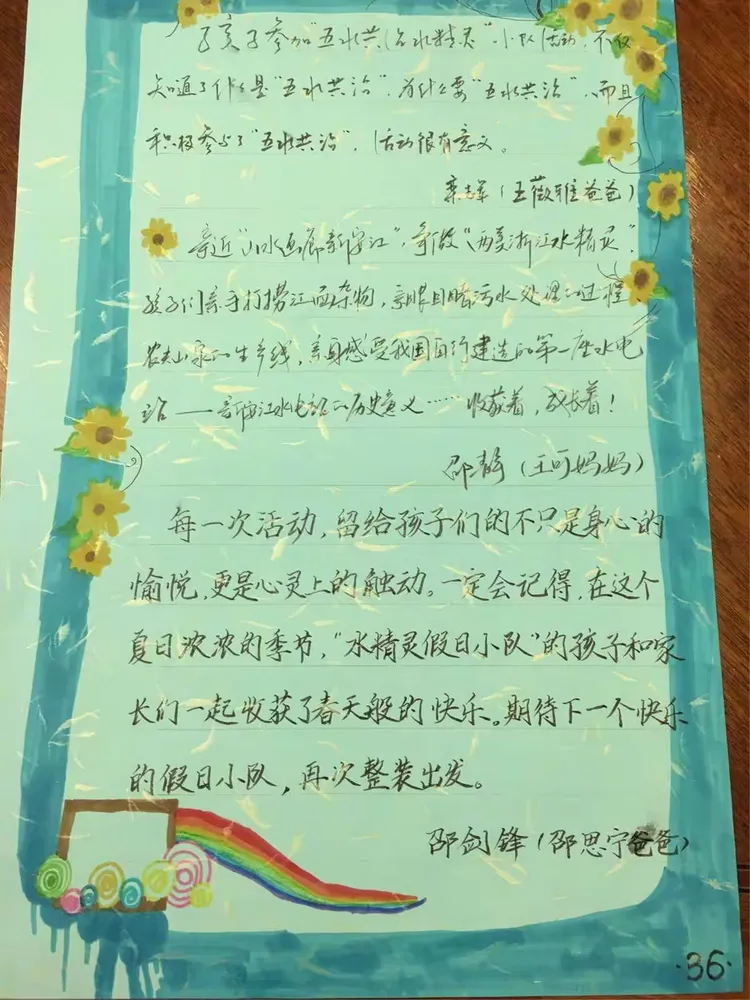 孩子参加“五水共治水精灵”小队活动，不仅
知道了什么是“五水共治”，为什么要“五水共治”，而且
积极参与了“五水共治”，活动很有意义。
（王薇雅爸爸）
亲近“山水画廊新安江”，争做“两美浙江水精灵”，
孩子们亲手打捞江面杂物，亲眼目睹污水处理的过程、
农夫山泉的生产线，亲身感受我国自行建造的第一座水电
站——新安江水电站的历史意义……收获着，成长着！
邵静（王可妈妈）
每一次活动，留给孩子们的不只是身心的
愉悦，更是心灵上的触动。一定会记得，在这个
夏日浓浓的季节，“水精灵假日小队”的孩子和家
长们一起收获了春天般的快乐。期待下一个快乐
的假日小队，再次整装出发。
邵剑锋（邵思宁爸爸）
·36·